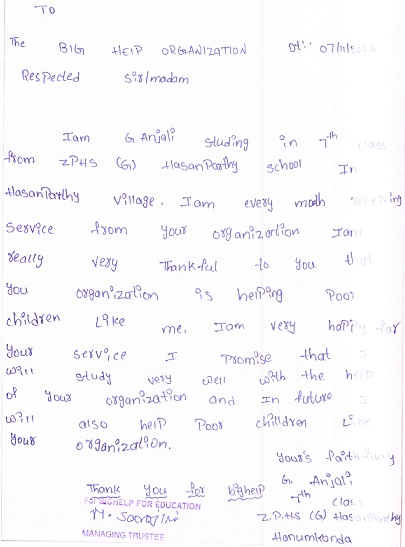 TO
The BIG HElP ORGANIZATION Dt:-
Respected Sir/madam
Iam G. Anjali studing in 7th class
from ZPHS (G) HasanParthy school In
HasanParthy village. Iam every moth receiving
service from your organization Iam
really very Thankful to you that
you organization is helping Poor
children Like me, Iam very happy for
your service I Promise that I
will study very well with the help
of your organization and In future I
will also help Poor chilldren Like
your organization.
your's faithfully
Thank you for bighelp G. Anjali
For BIGHELP FOR EDUCATION 7th class
Z.P.HS (G) Hasanparthy
MANAGING TRUSTEE Hanumkonda